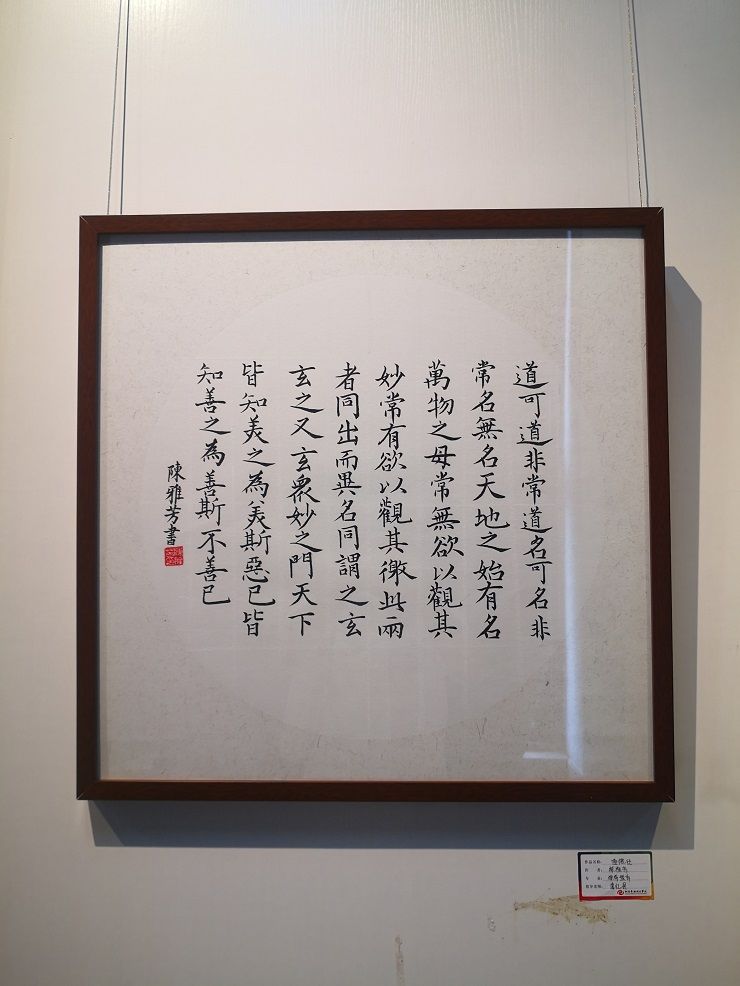 道可道非常道名可名非
常名無名天地之始有名
萬物之母常無欲以觀其
妙常有欲以觀其徼此兩
者同出而異名同謂之玄
玄之又玄眾妙之門天下
皆知美之為美斯惡已皆
知善之為善斯不善已
陳雅芳書
作品名称：道德经
作者：陈雅芳
专业：
指导老师：